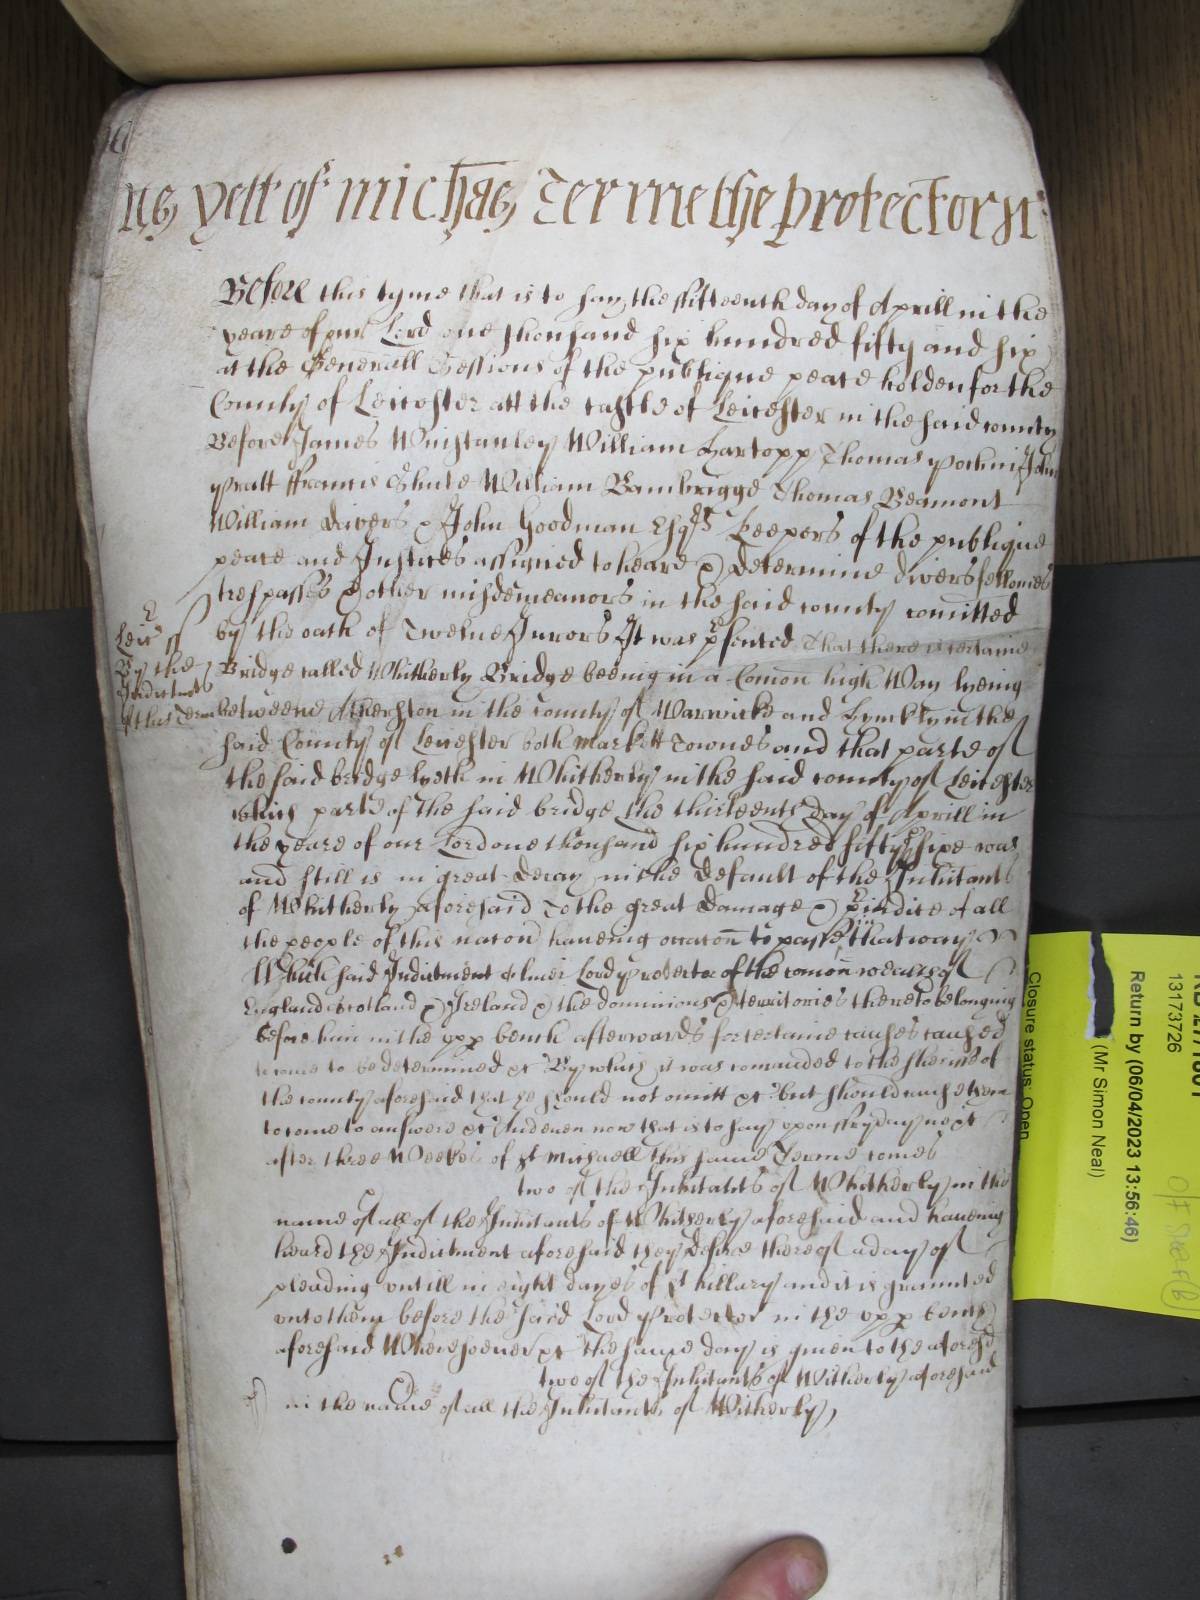 yett of Michas Terme the Protectors
Before this tyme that is to say the fifteenth day of Aprill in the
yeare of our Lord one thousand six hundred fifty and six
at the Generall Sessions of the publique peace holden for the
County of Leicester att the castle of Leicester in the said county
Before James Winstanley William Hartopp Thomas Pochin John
Pratt ffrancis Shute William Bambrigge Thomas Beamont
William Divers & John Goodman Esqrs Keepers of the publique
peace and Justices assigned to heare & determine divers fellonies
trespasses & other misdemeanors in the said county comitted
by the oath of Twelve Jurors It was psented That there is certaine
Leic ss
By the
Indictmts
of this Terme
Bridge called Whitherly Bridge beeing in a Comon high Way lyeing
betweene Atherston in the county of Warwicke and Hynckly in the
said County of Leicester both Markett Townes and that parte of
the said bridge lyeth in Whitherly in the said county of Leicester
which parte of the said bridge the thirteenth day of Aprill in
the yeare of our Lord one thousand six hundred fifty sixe was
and still is in great Decay in the default of the Inhitants
of Whitherly aforesaid To the great Damage & piudice of all
the people of this nacon haveing occacon to passe that way
Which said Indictment Lord Protector of the comon wealth of
England Scotland & Ireland & the dominions & territories thereto belonging
before him in the upp bench afterwards for certaine causes caused
to come to be determined &c By which it was comanded to the sheriffe of
the county aforesaid that he should not omitt &c but should cause them
to come to answere &c And even now that is to say upon ffryday next
after three Weekes of St Michaell this same Terme comes
two of the Inhitants of Whitherly in the
name of all of the Inhitants of Whitherly aforesaid and haveing
heard the Indictment aforesaid they desire thereof a day of
pleading untill in eight dayes of St Hillary and it is graunted
unto them before the said Lord Protector in the upp bench
aforesaid Wheresoever &c the same day is given to the aforesd
two of the Inhitants of Witherly aforesaid
in the name of all the Inhitants of Witherly
Closure status: Open
13173726
Return by (06/04/2023 13:56:46)
(Mr Simon Neal)